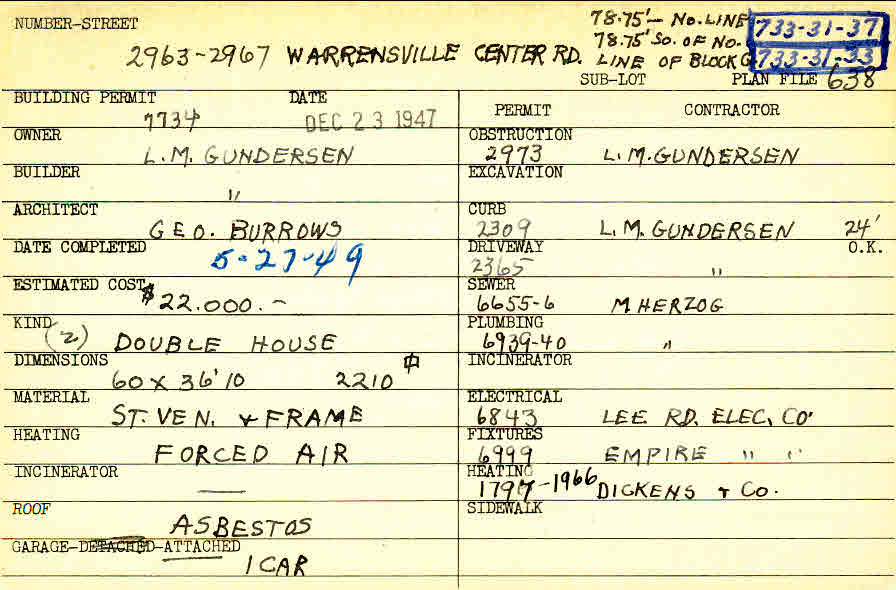 NUMBER-STREET
2963-2967 WARRENSVILLE CENTER RD.
78.75'- NO. LINE
78.75' SO. OF NO.
LINE OF BLOCK G.
733-31-37
733-31-33
SUB-LOT PLAN FILE 638
BUILDING PERMIT DATE
7734 DEC 23 1947
OWNER
L.M. GUNDERSEN
BUILDER
"
ARCHITECT
GEO. BURROWS
DATE COMPLETED
5-27-49
ESTIMATED COST
$22.000.-
KIND
(2) DOUBLE HOUSE
DIMENSIONS
60 X 36'10 2210
MATERIAL
ST. VEN. & FRAME
HEATING
FORCED AIR
INCINERATOR
—
ROOF
ASBESTOS
GARAGE-DETACHED-ATTACHED
1 CAR
PERMIT CONTRACTOR
OBSTRUCTION
2973 L.M. GUNDERSEN
EXCAVATION
CURB
2309 L.M. GUNDERSEN 24'
DRIVEWAY O.K.
2365 "
SEWER
6655-6 M HERZOG
PLUMBING
6939-40 "
INCINERATOR
ELECTRICAL
6843 LEE RD. ELEC, CO.
FIXTURES
6999 EMPIRE " "
HEATING
1797-1966 DICKENS & CO.
SIDEWALK